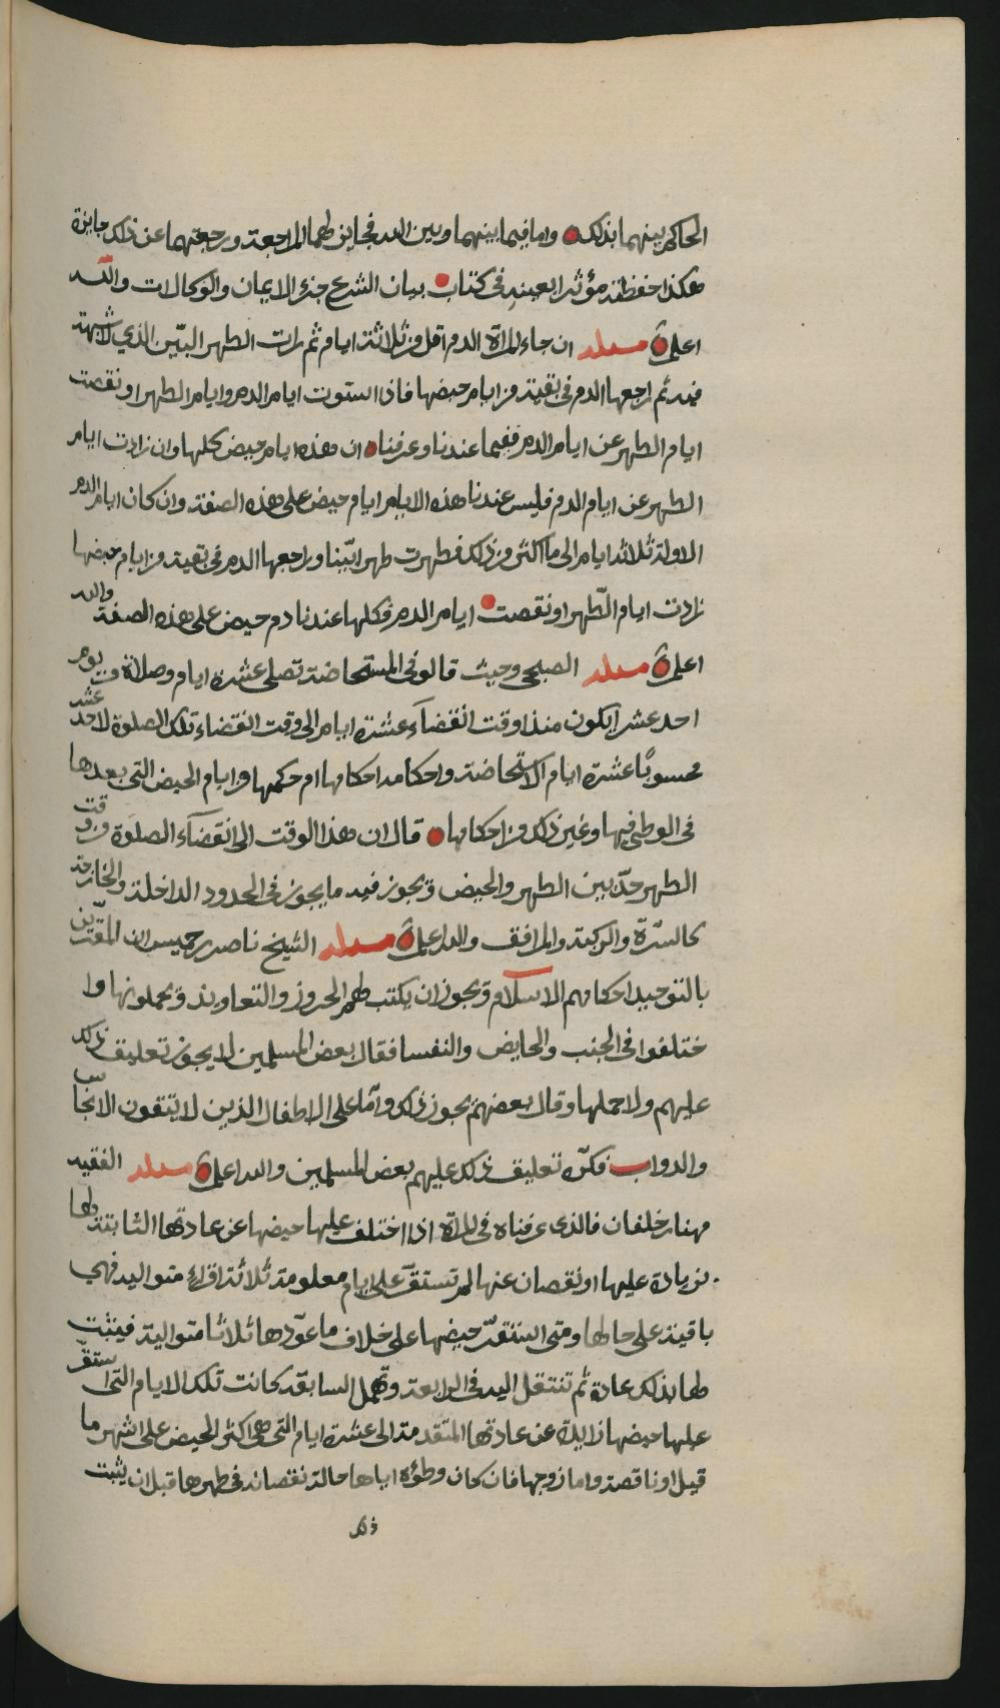 الحاكم بينهما بذلك واما فيما بينهما وبين الله فجايز لهما المراجعة ورجعتهما عن ذلك جايزة
هكذا حفظته مؤثرا بعينه في كتاب بيان الشرع جزء الايمان والوكالات والله
اعلم مسئله ان جاء المراة الدم اقل من ثلاثة ايام ثم رات الطهر البيّن الذي لا شبهة
فيه ثم راجعها الدم في بقية من ايام حيضها فاذا استوت ايام الدم وايام الطهر او نقصت
ايام الطهر عن ايام الدم ففيما عندنا وعرفناه ان هذه ايام حيض كلها وان زادت ايام
الطهر عن ايام الدم فليس عندنا هذه الايام ايام حيض على هذه الصفة وان كان ايام الدم
الاولة ثلاثة ايام الى ما اكثر من ذلك فطهرت طهرا بيّنا وراجعها الدم في بقية من ايام حيضها
زادت ايام الطّهر او نقصت ايام الدم فكلها عندنا دم حيض على هذه الصفة والله
اعلم مسئله الصبحي وحيث قالو في المستحاضة تصلى عشرة ايام وصلاة من يوم
احد عشر ايكون منذ وقت انقضاء عشرة ايام الى وقت انقضاء تلك الصلوة لاحد عشر
محسوبًا عشرة ايام الاستحاضة واحكامه احكامها ام حكمها من ايام الحيض التي بعدها
في الوطئ فيها وغير ذلك من احكامها قال ان هذا الوقت الى انقضاء الصلوة من وقت
الطهر حدّ بين الطهر والحيض ويجوز فيه ما يجوز في الحدود الداخلة والخارجة
كالسّرّة والركبة والمرافق والله اعلم مسئله الشيخ ناصر بن خميس ان المقرّين
بالتوحيد احكامهم الاسلام ويجوز ان يكتب لهم الحروز والتعاويذ ويحملونها وا
ختلفوا في الجنب والحايض والنفسا فقال بعض المسلمين لا يجوز تعليق ذلك
عليهم ولا حملها وقال بعضهم يجوز ذلك وامّا على الاطفال الذين لا يتقون الانجاس
والدواب فكرّه تعليق ذلك عليهم بعض المسلمين والله اعلم مسئله الفقيه
مهنا بن خلفان فالذي عرفناه في المراة اذا اختلف عليها حيضها عن عادتها الثابتة لها
بزيادة عليها او نقصان عنها لم تستقرّ على ايام معلومة ثلاثة اقراء متواليه فهي
باقية على حالها ومتى استقرّ حيضها على خلاف ما عوّدها ثلاثا متوالية فيثبت
لها بذلك عادة ثم تنتقل اليه في الرابعة وتهمل السابقة كانت تلك الايام التي استقرّ
عليها حيضها زايدة عن عادتها المتقدمة الى عشرة ايام التي هي اكثر الحيض على اشهر ما
قيل او ناقصة واما زوجها فان كان وطؤه اياها حالة نقصانه في طهرها قبل ان يثبت